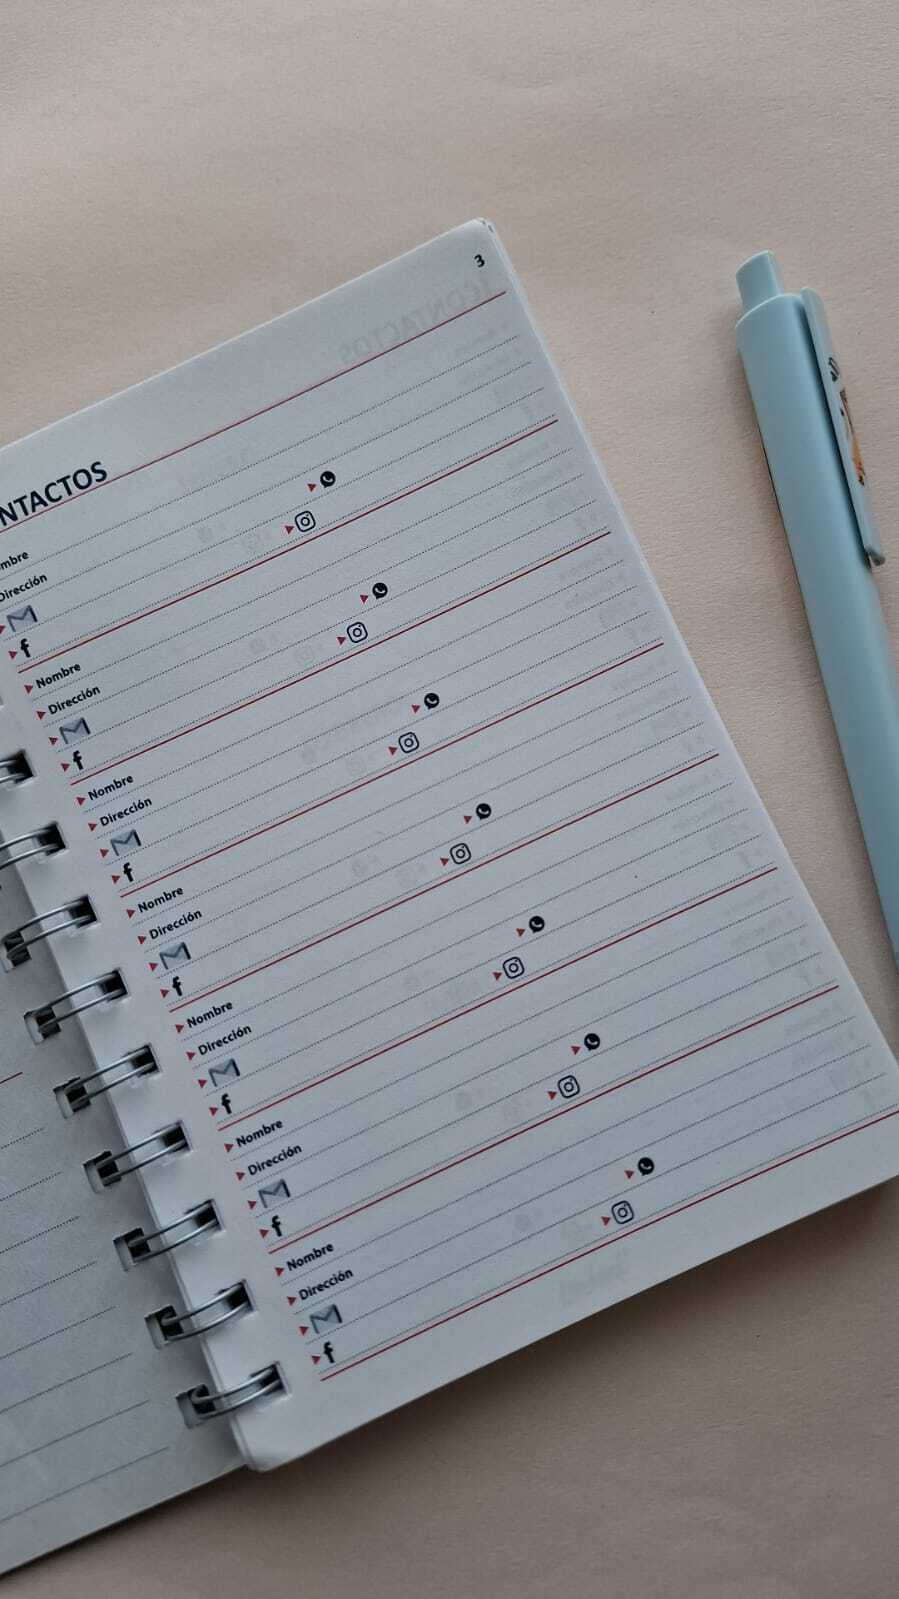 3
NTACTOS
mbre
Dirección
Nombre
Dirección
Nombre
Dirección
Nombre
Dirección
Nombre
Dirección
Nombre
Dirección
Nombre
Dirección